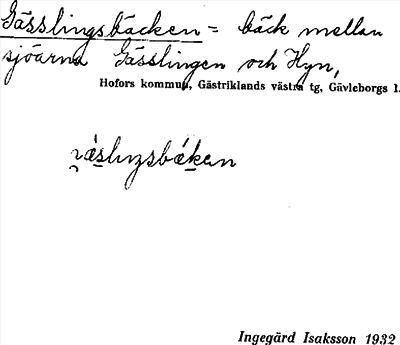 Gässlingsbäcken = bäck mellan
sjöarna Gässlingen och Hyn,
Hofors kommun, Gästriklands västra tg, Gävleborgs l.
Ingegärd Isaksson 1932